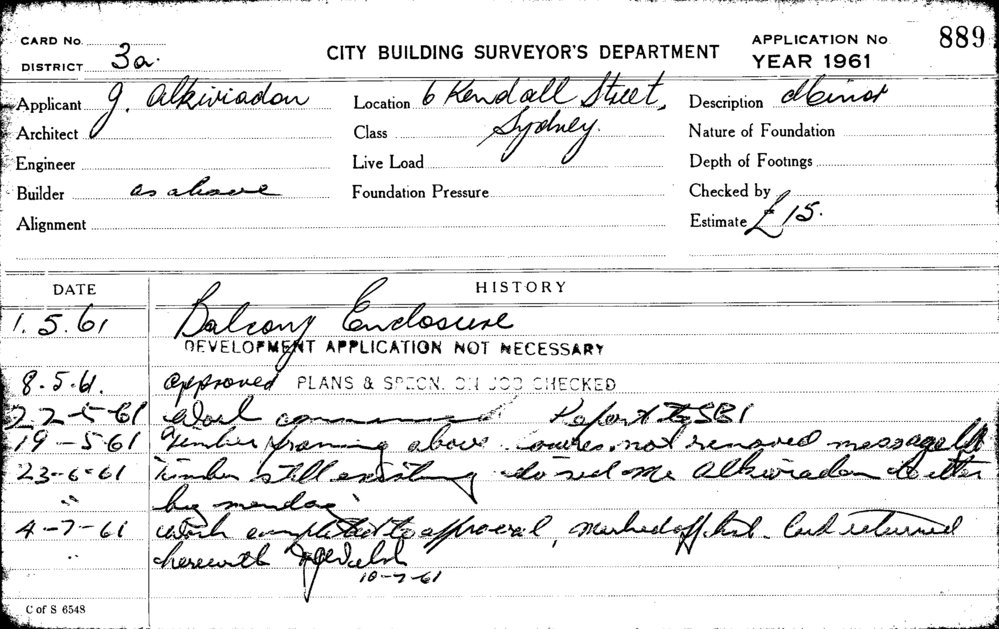 CARD No.
DISTRICT 3a.
CITY BUILDING SURVEYOR'S DEPARTMENT
APPLICATION No 889
YEAR 1961
Applicant J. Alkiviadon Location 6 Kendall Street, Description Minor
Architect Class Sydney. Nature of Foundation
Engineer Live Load Depth of Footings
Builder as above Foundation Pressure Checked by
Alignment Estimate £15.
DATE HISTORY
1.5.61 Balcony Enclosure
DEVELOPMENT APPLICATION NOT NECESSARY
8.5.61. approved PLANS & SPECN. ON JOB CHECKED
22-5-61 Work commenced Report to SBI
19-5 61 Timber framing above not removed message left
23-6-61 Timber still existing Alkiviadon to
" by monday
4-7-61 Work completed to approval, marked off list. Card returned
" herewith
10-7-61
C of S 6548